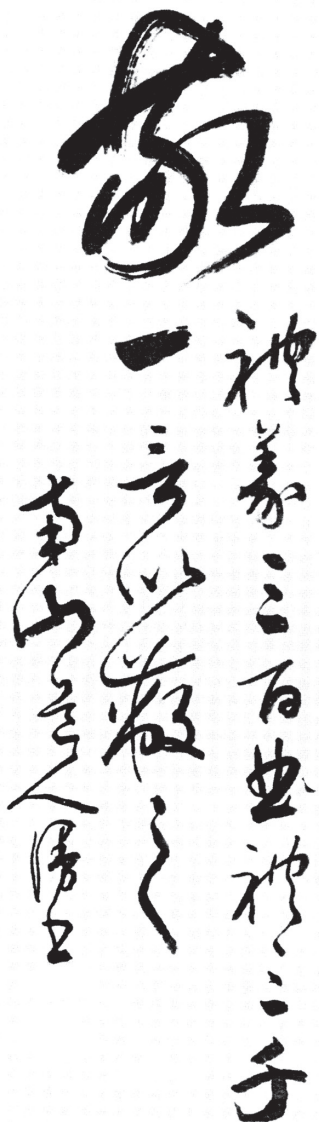 敬
禮義三百曲禮三千
一言以蔽之
南山道人書